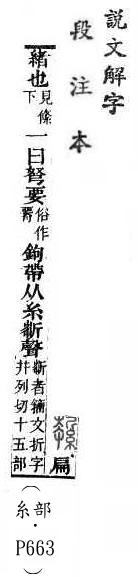 說文解字
段注本
緒也見絛下一曰弩𦝫俗作䏿鉤帶从糸折聲𣂚者籒文折字幷列切十五部
扁
(糸部·P663)